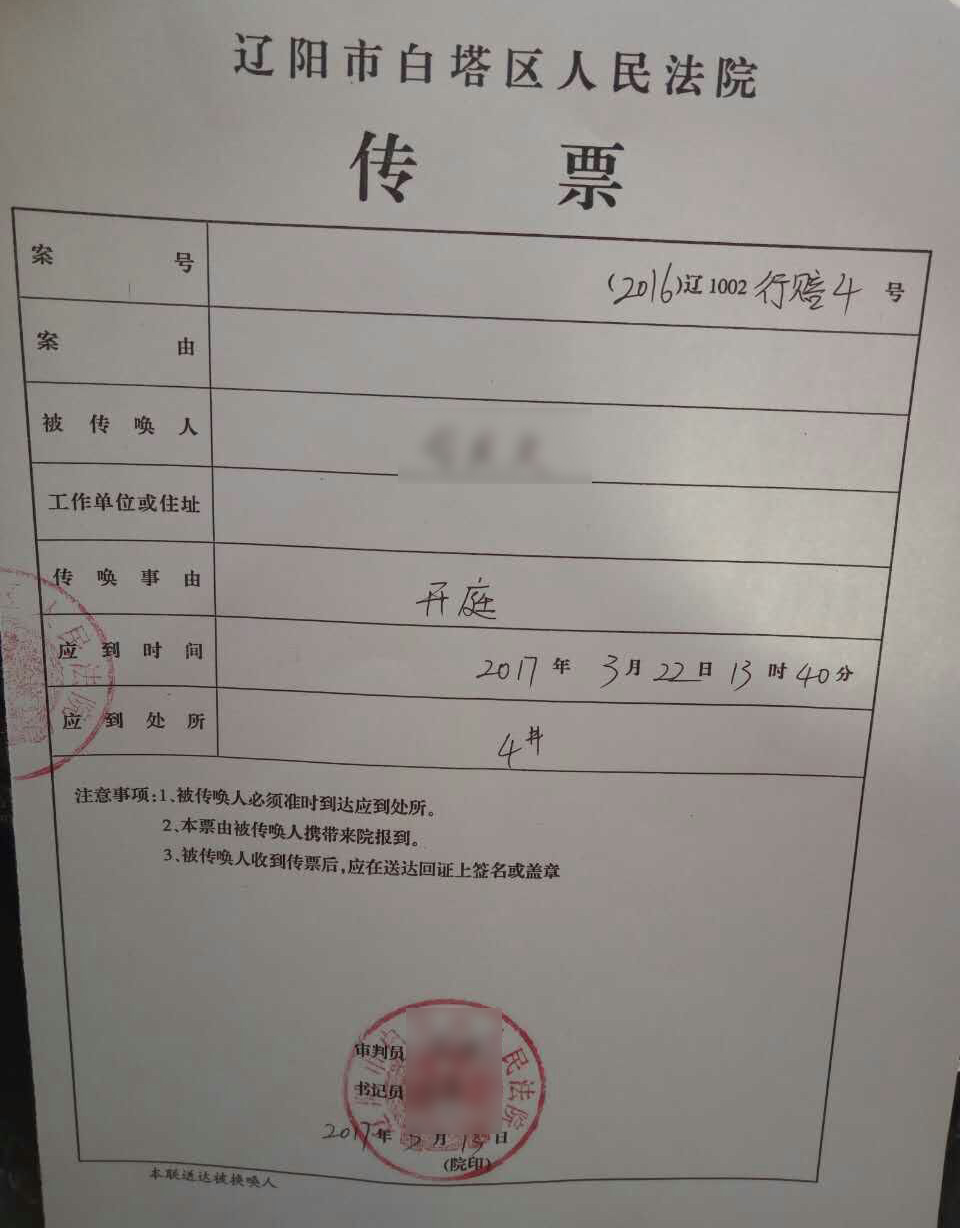 辽阳市白塔区人民法院
传票
案号 (2016)辽1002行赔4号
案由
被传唤人
工作单位或住址
传唤事由 开庭
应到时间 2017年3月22日13时40分
应到处所 4#
注意事项:1、被传唤人必须准时到达应到处所。
2、本票由被传唤人携带来院报到。
3、被传唤人收到传票后,应在送达回证上签名或盖章
审判员
书记员
2017年 月13日
(院印)
本联送达被换唤人
民法院
人民法院